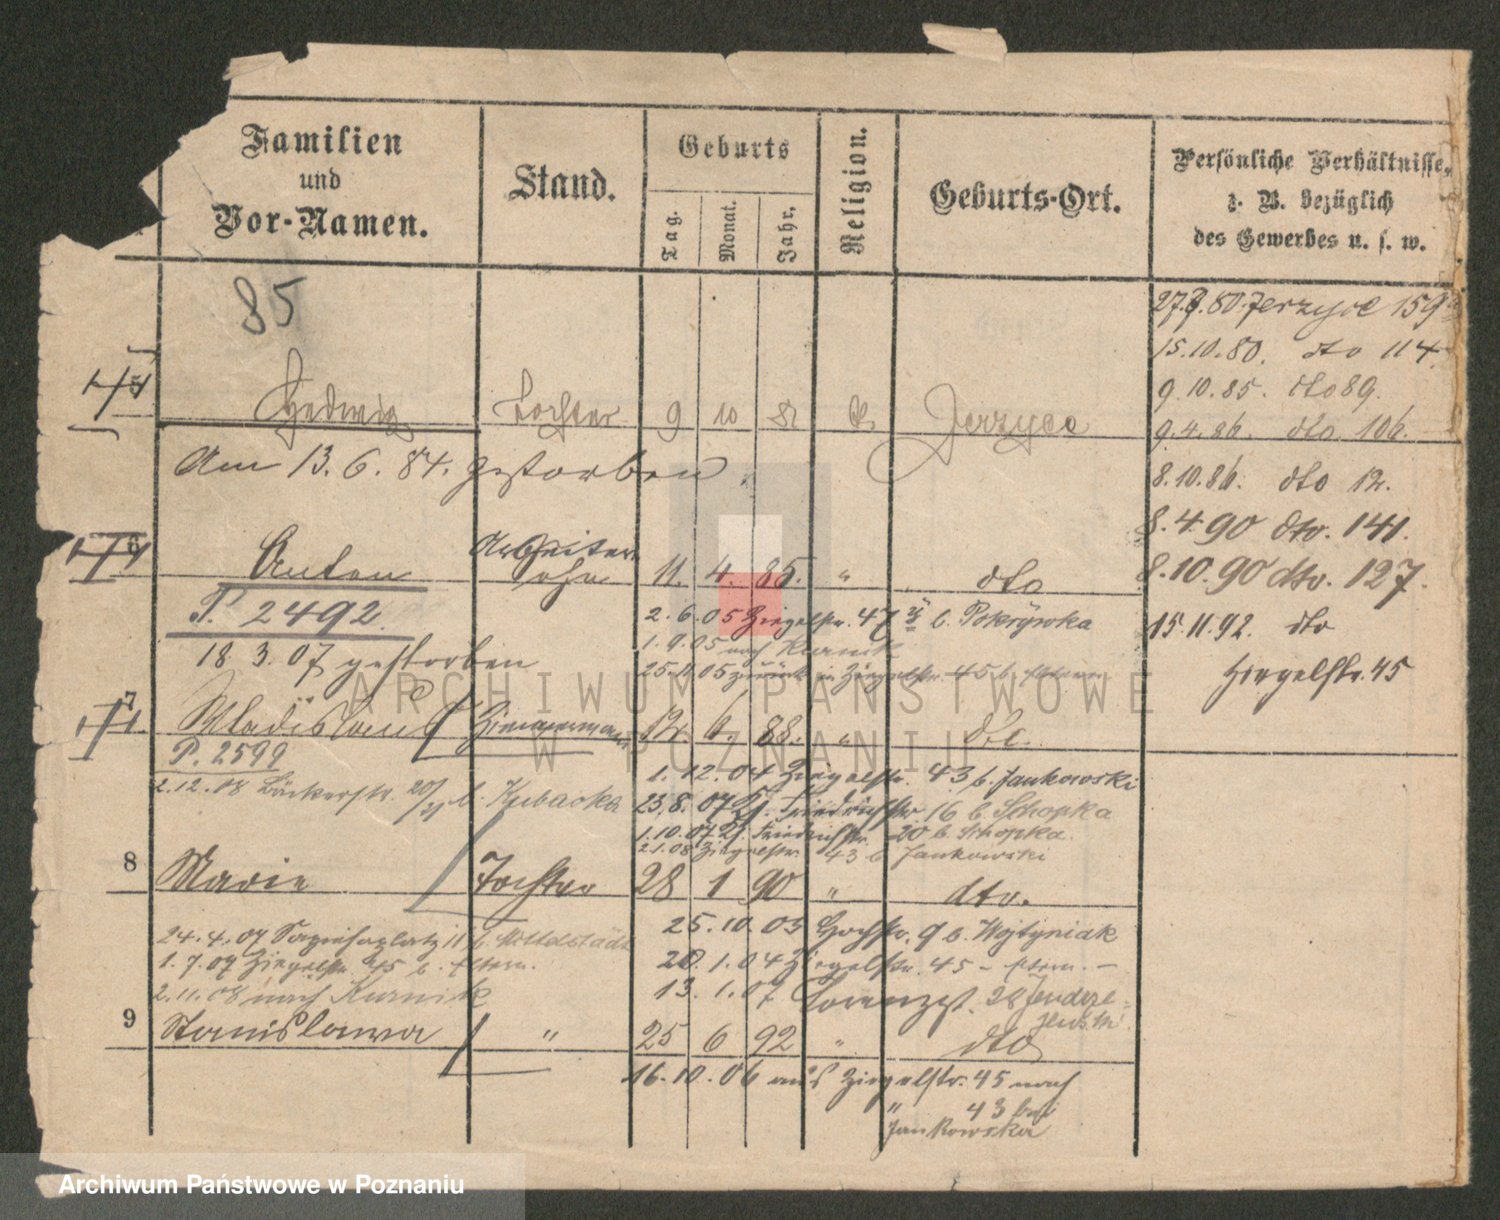 Familien
und
Vor-Namen.
Stand.
Geburts
Tag.
Monat.
Jahr.
Religion.
Geburts-Ort.
Persönliche Verhältnisse,
z. B. bezüglich
des Gewerbes u. s. w.
85
27.8.80. Jerzyce 159
15.10.80. dto 114
9.10.85. dto 89.
5 Hedwig Tochter 9 10 Jerzyce
9.4.86. dto 106.
Am 13.6.84. gestorben
8.10.86. dto 12.
8.4.90 dto. 141.
6 Anton Arbeiter Sohn 11. 4. 85. " dto
8.10.90 dto. 127.
P. 2492
2.6.05 Ziegelstr. 47 b. Pokrywka
15.11.92. dto
Ziegelstr. 45
18 3.07 gestorben
1.9.05 nach Kurnik
25.11.05 zurück in Ziegelstr. 45 b. Eltern
7 Wladislaus Zimmermann 12. 6. 88. "
P. 2599
1.12.04 Ziegelstr. 43 b. Jankowski
2.12.08 Bäckerstr. 20/21 b. Kubacka
23.8.07 Friedrichstr. 16 b. Schopka
1.10.07 Friedrichstr. 20 b. Schopka.
2.1.08 Ziegelstr. 43 b Jankowski
8 Marie Tochter 28 1 90 " dto.
25.10.03 Hochstr. 9 b. Wojtyniak
24.4.07 Sapiehaplatz 11 b. Mittelstädt
20.1.04 Ziegelstr. 45 - Eltern. -
1.7.07 Ziegelstr. 45 b. Eltern.
13.1.07 Lorenzst. 28
2.11.08 nach Kurnik
9 Stanislawa " 25 6 92 " dto
16.10.06 aus Ziegelstr. 45 nach
" 43 bei
Jankowska
ARCHIWUM PAŃSTWOWE
W POZNANIU
Archiwum Państwowe w Poznaniu